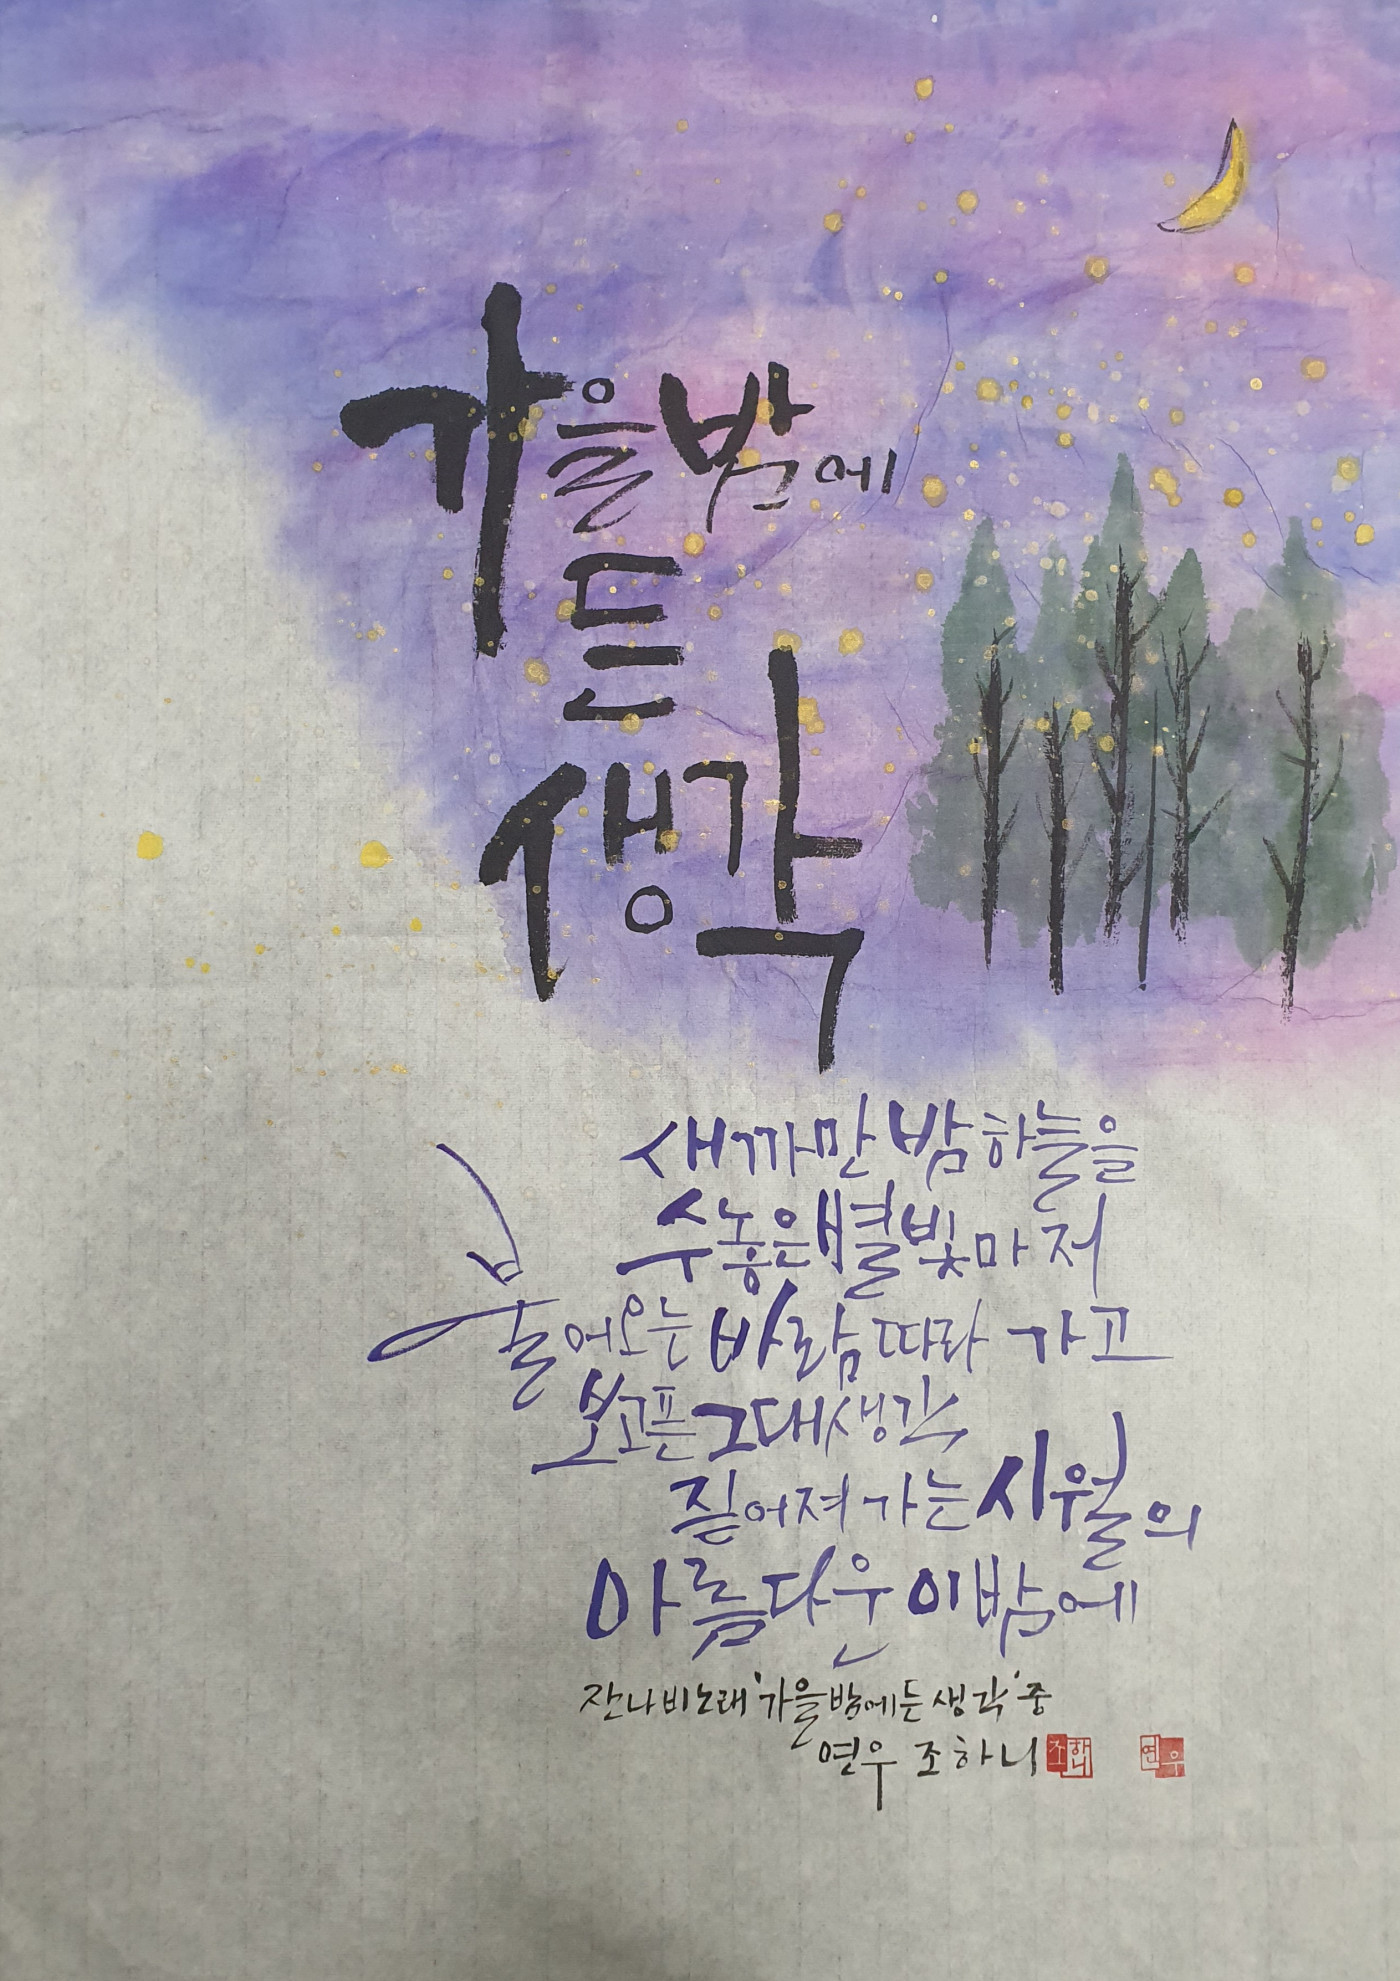 가을밤에
든
생각
새까만 밤하늘을
수놓은 별빛마저
불어오는 바람 따라 가고
보고픈 그대 생각
짙어져 가는 시월의
아름다운 이 밤에
잔나비 노래 '가을밤에 든 생각' 중
연우 조하니
조하니
연우